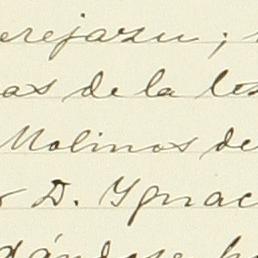 erejazu;
as de la
Molinos de
D. Ignac
dándose